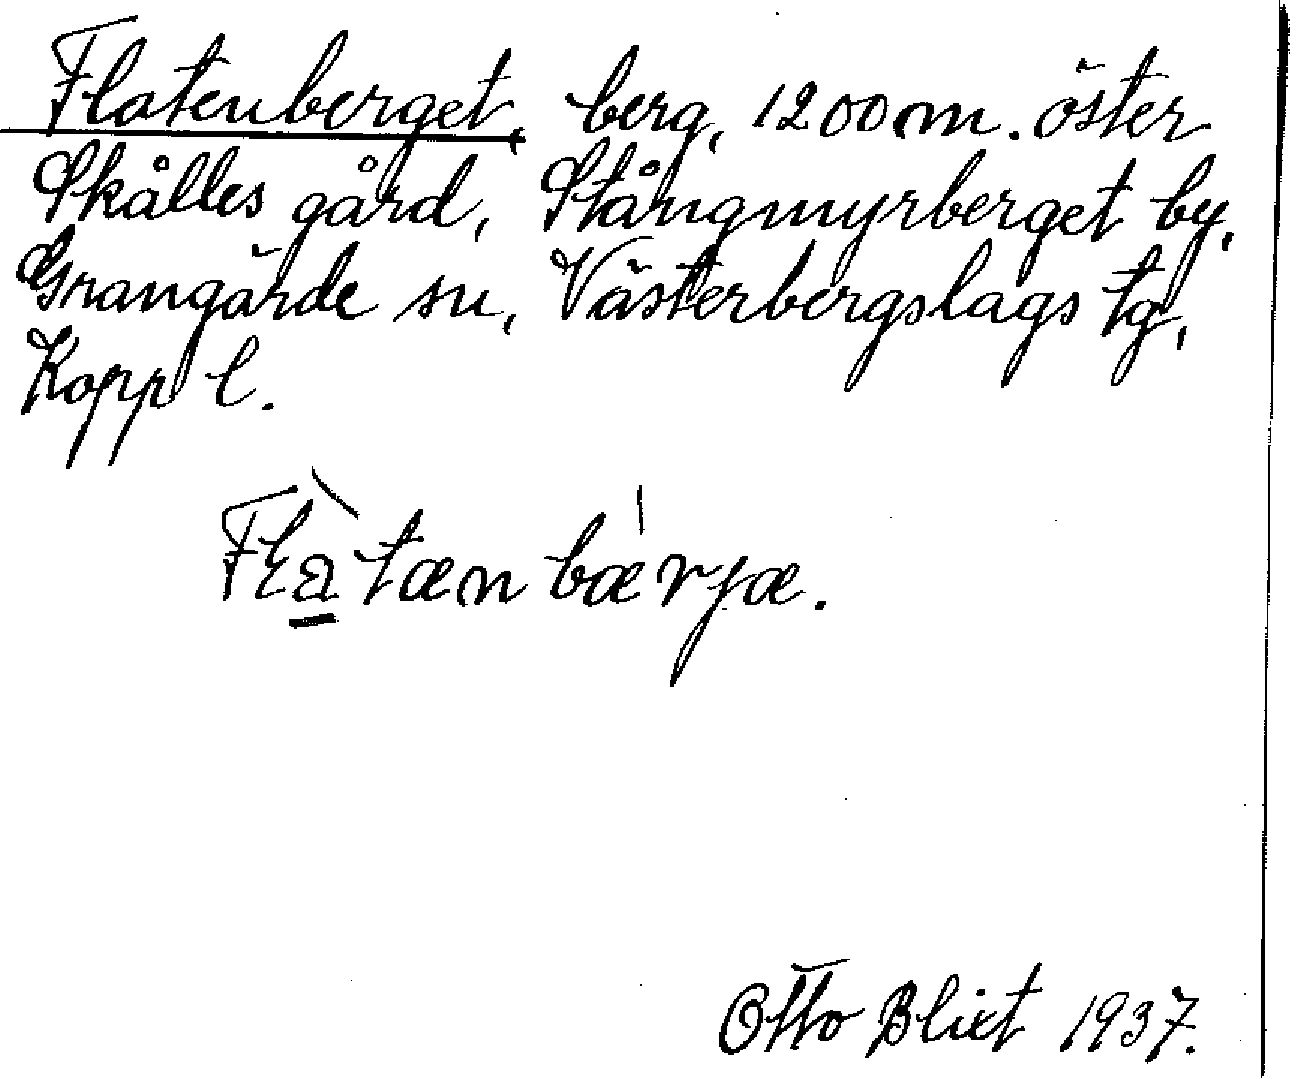 Flatenberget, berg, 1200 m. öster
Skålles gård, Stångmyrberget by,
Grangärde sn, Västerbergslags tg,
Kopp l.
Flàtænbærjæ.
Otto Blixt 1937.